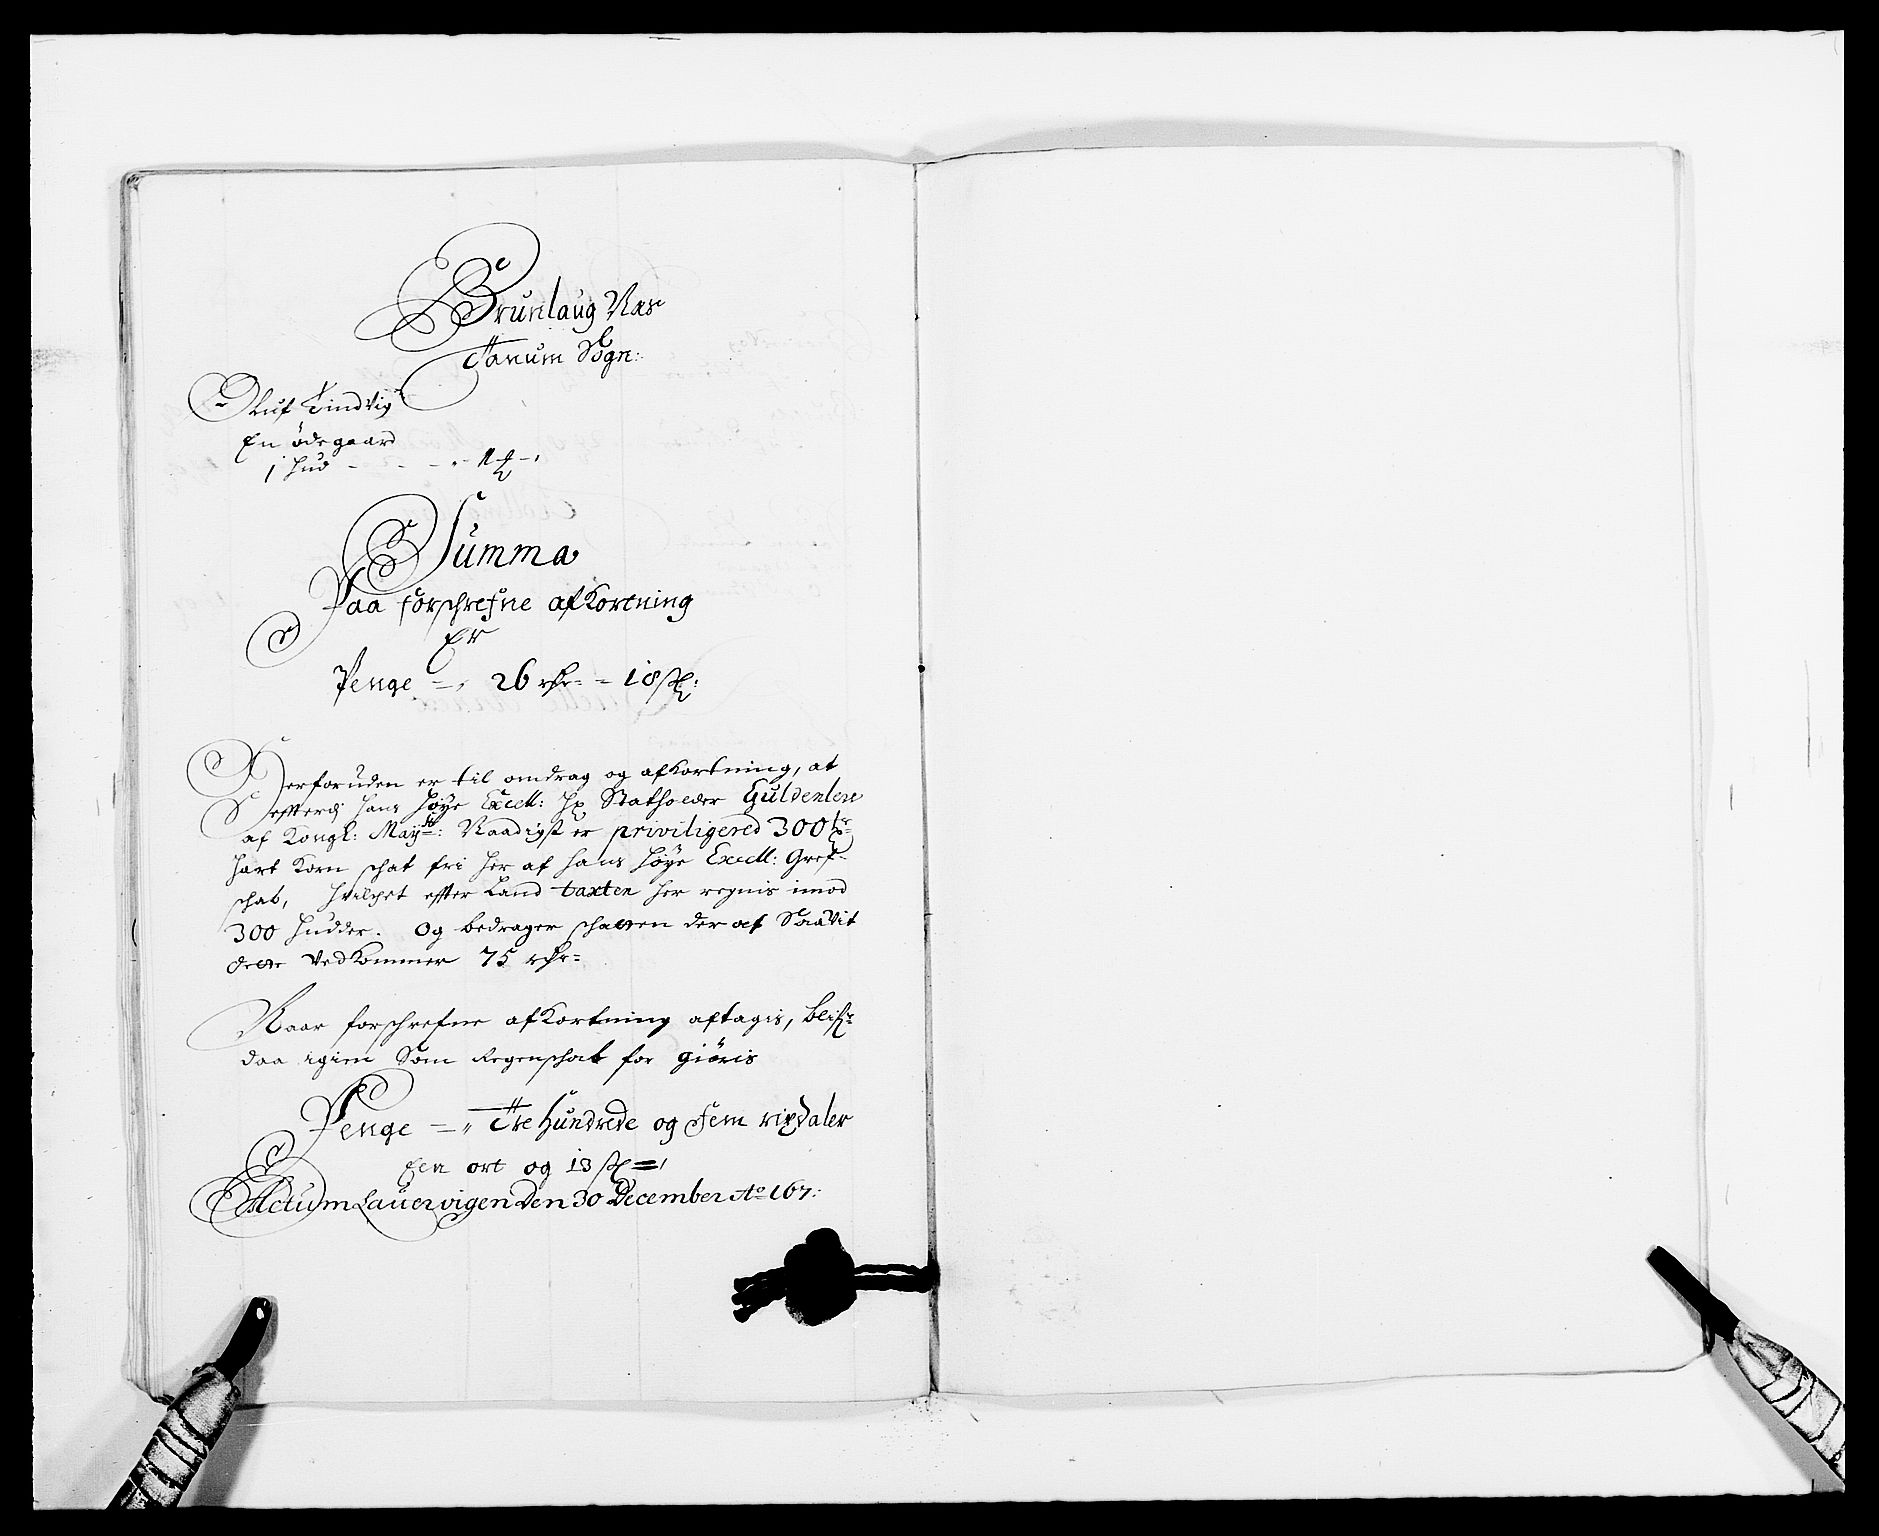 Brunlaug Næs
Tanum Sogn:
Oluf Tindvig
En ödegaard
1 hud - - - - 1 ₰ - ,
Summa
Paa forschrefne afkortning
Er
Penge = , 26 rdr = - 18 sk:
Herforuden er til omdrag og afkortning, at
efftersi hans höye Excell: Hr Statholder Güldenlew
af Kongl: Mayst: Naadigst er priviligered 300 tr
hart Korn schat fri her af hans höye Excell: Gref-
schab, hvilchet effter Land taxten her regnis imod
300 hudder. Og bedrager schatten der af Saavit
dette vedkommer 75 rdr=
Naar forschrefne afkortning aftagis, blifr
daa igien Som Regenschab for giöris
Penge = „ Tre hundrede og Fem rixdaler
Een ort og 13 sk = ,
Actum Lauervigen den 30 December Ao 167: